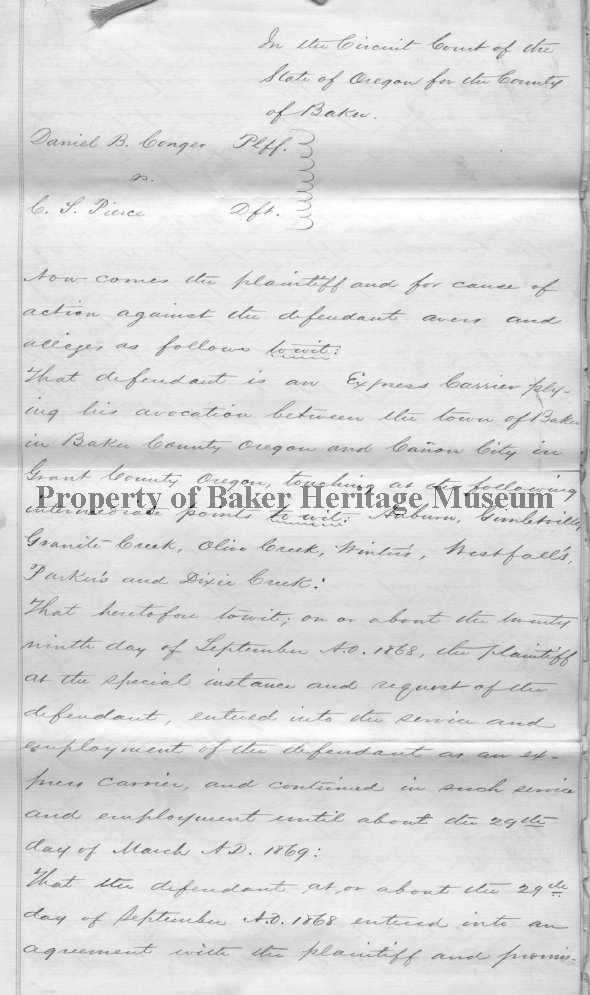 In the Circuit Court of the
State of Oregon for the County
of Baker.
Daniel B. Conger Plff.
vs.
C. S. Pierce Dft.
Now comes the plaintiff and for cause of
action against the defendant avers and
alleges as follows to wit:
That defendant is an Express Carrier ply-
ing his avocation between the town of Baker
in Baker County Oregon and Cañon City in
Grant County Oregon, touching at the following
Property of Baker Heritage Museum
intermediate points to wit: Auburn,
Granite Creek, Olive Creek, Winter's, Westfall's,
Parker's and Dixie Creek:
That heretofore towit; on or about the twenty
ninth day of September A.D. 1868, the plaintiff
at the special instance and request of the
defendant, entered into the service and
employment of the defendant as an ex-
press carrier, and continued in such service
and employment until about the 29th
day of March A.D. 1869:
That the defendant, at or about the 29th
day of September A.D. 1868 entered into an
agreement with the plaintiff and promis-